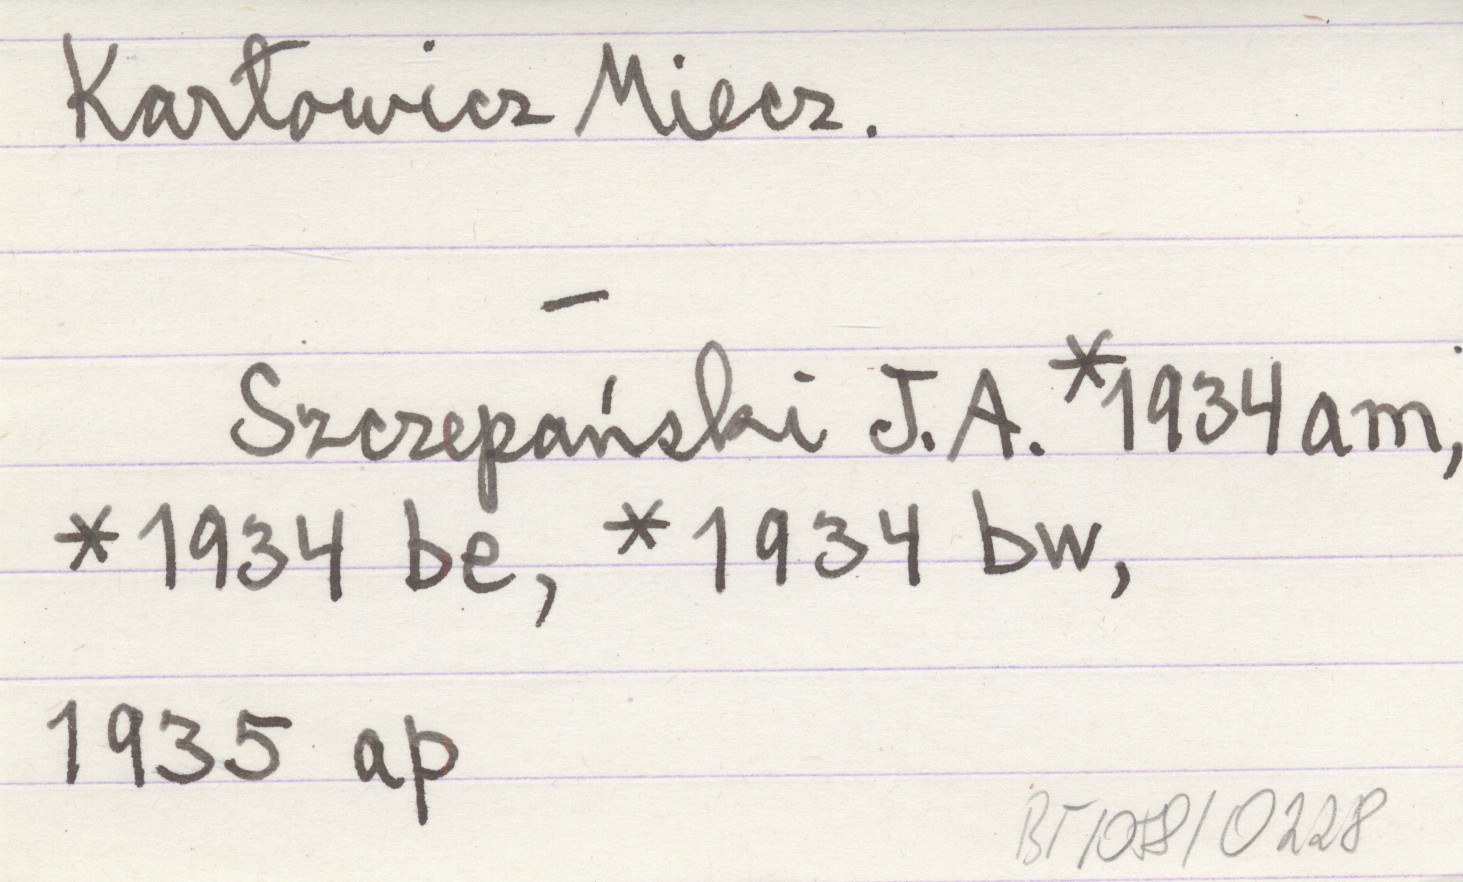 Karłowicz Miecz.
—
Szczepański J.A. *1934 am,
*1934 be, *1934 bw,
1935 ap
BT/058/0228